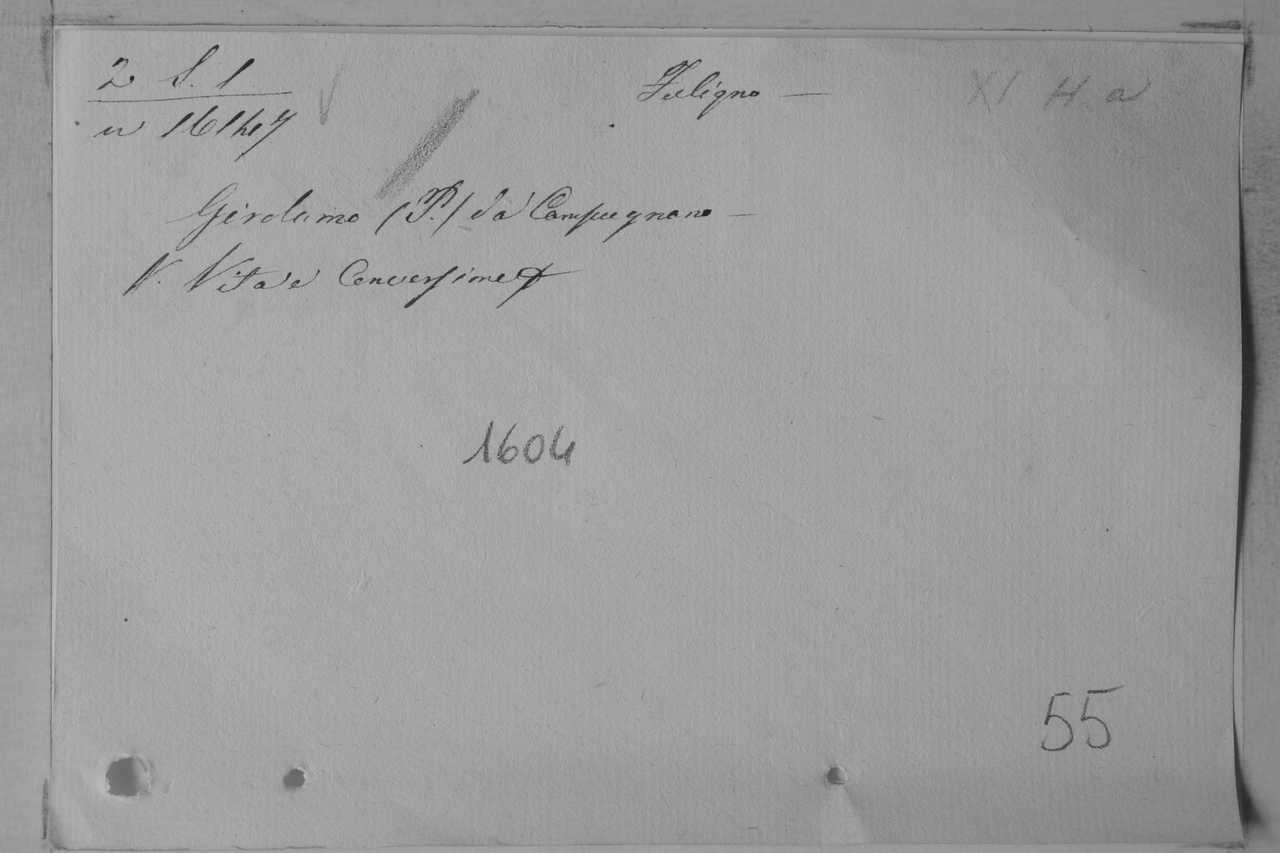 2 S. 1
Fuligno —
XI H a
n 16147
Girolamo (P.) da Campugnano —
V. Vita e Conversione
1604
55